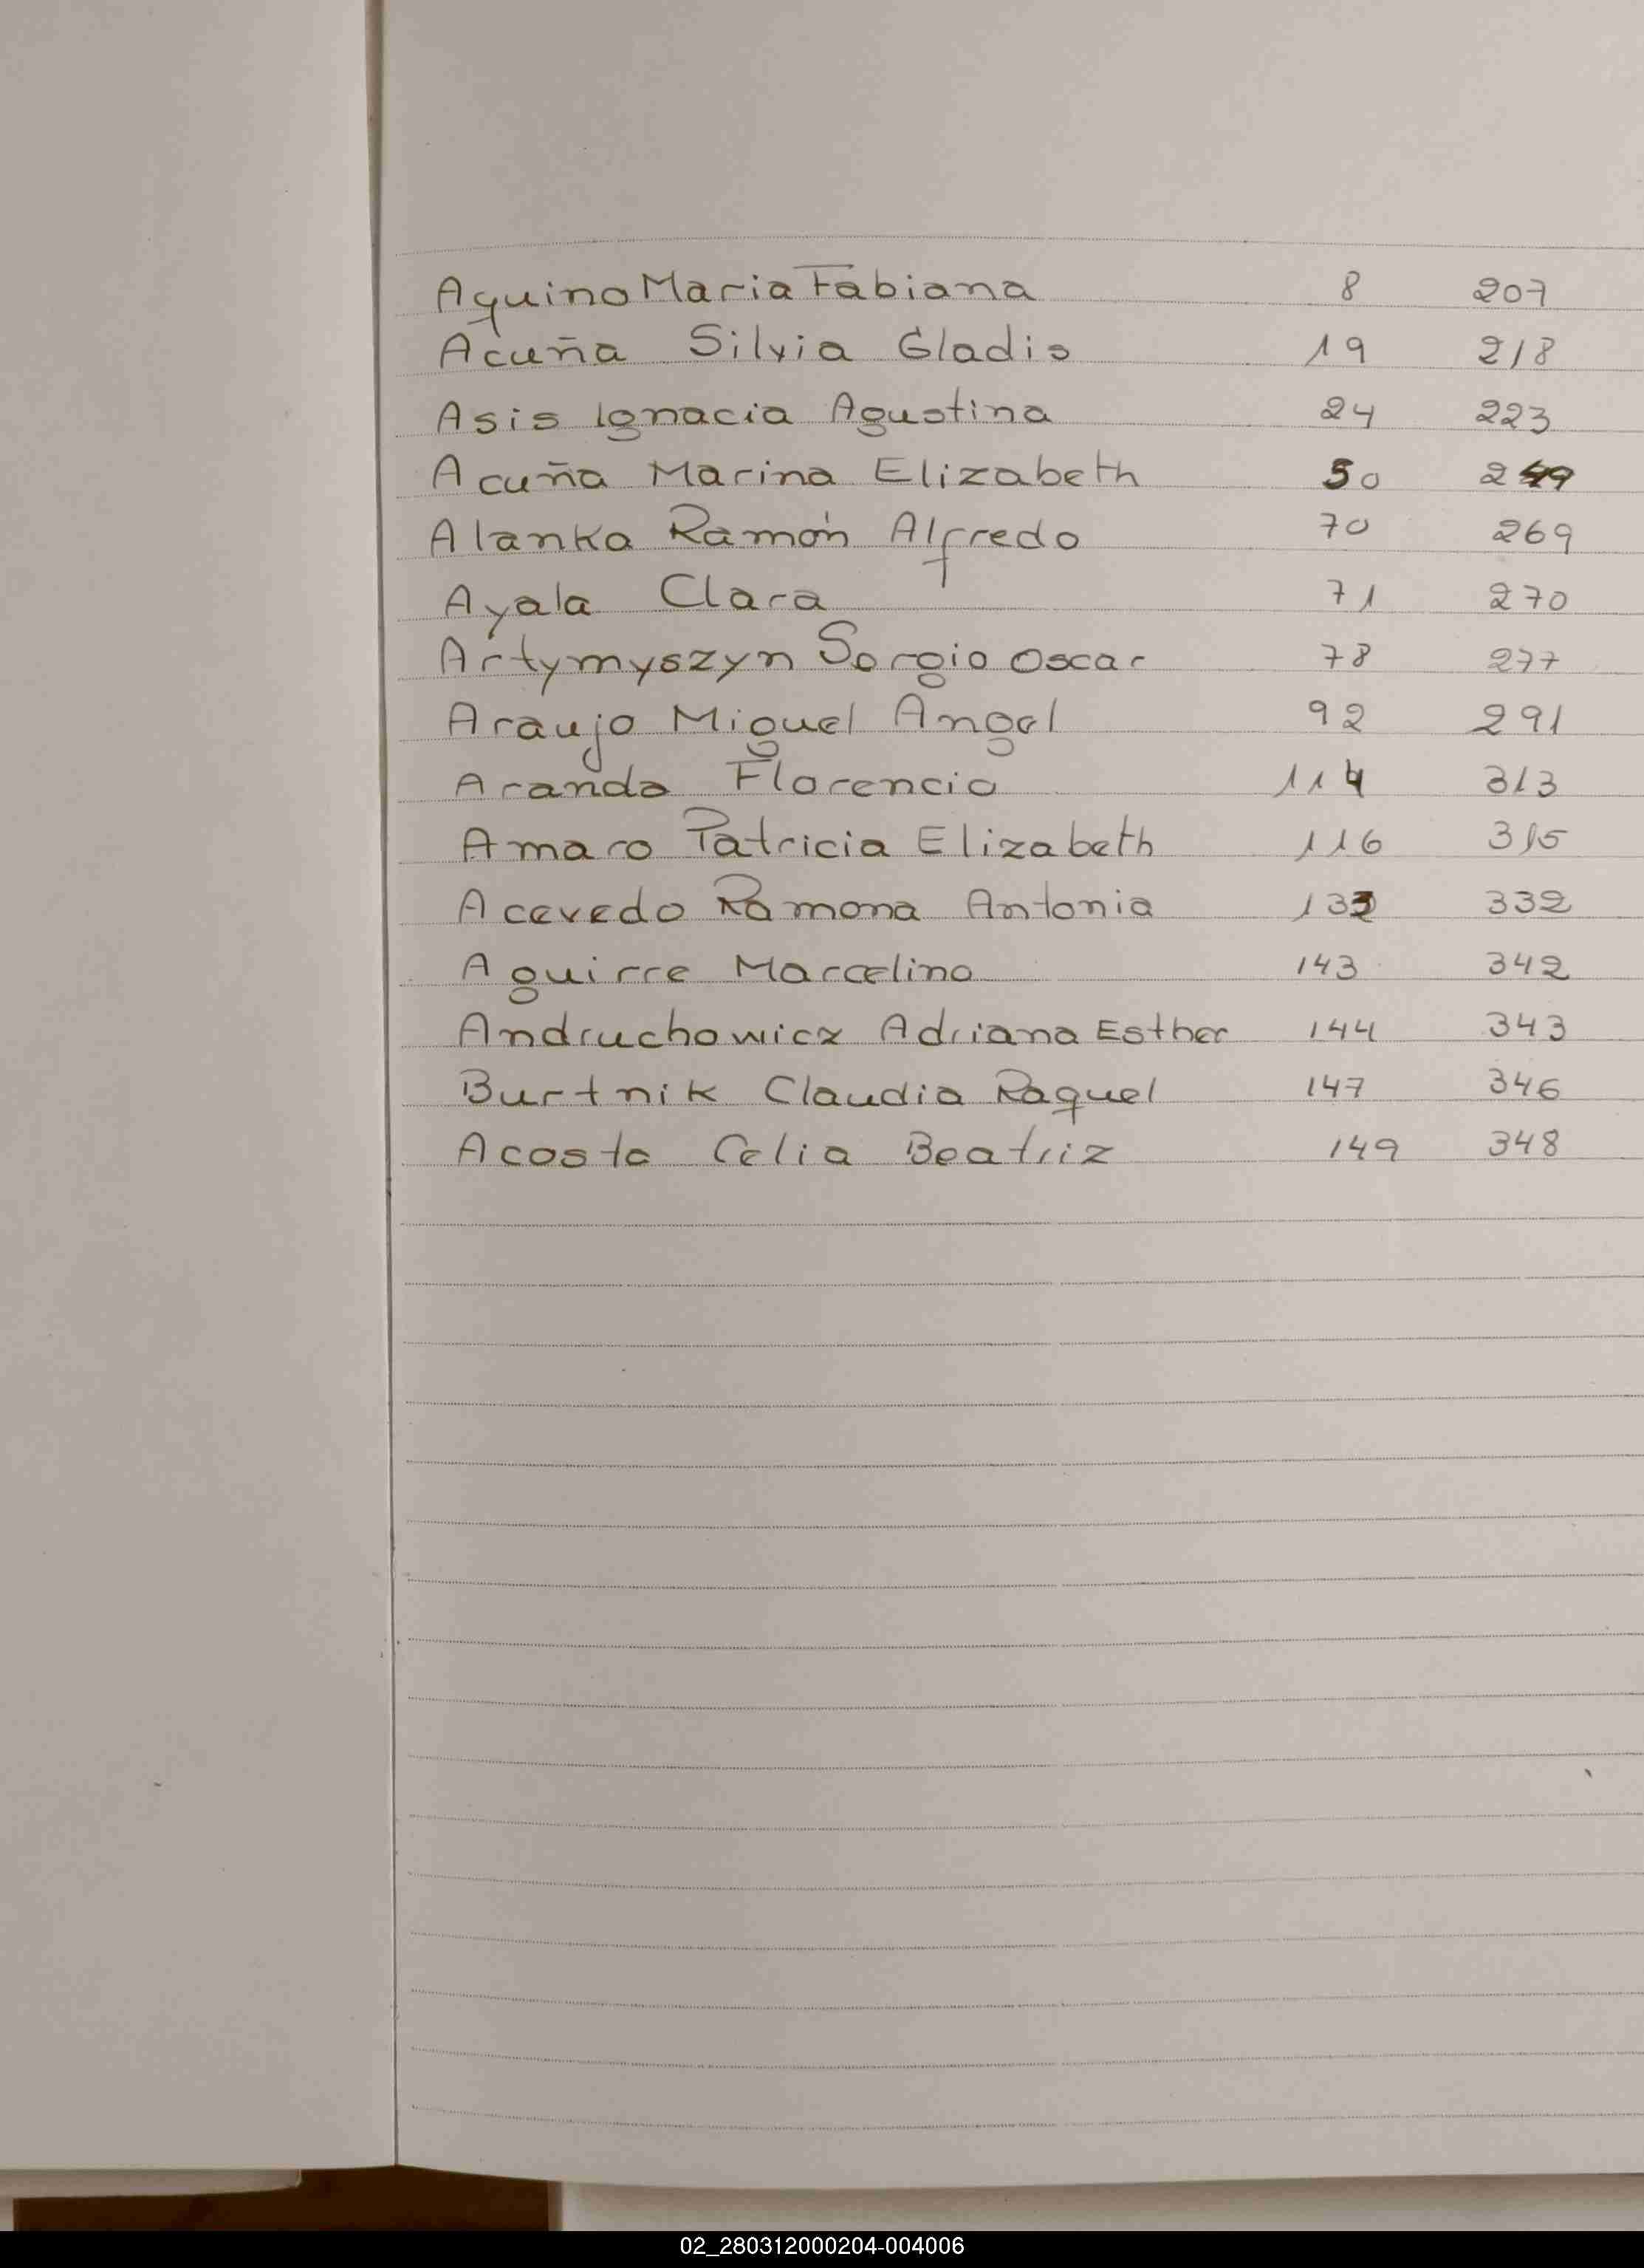 Aquino Maria Fabiana 8 207
Acuña Silvia Gladis 19 218
Asis Ignacia Agustina 24 223
Acuña Marina Elizabeth 50 249
Alanka Ramón Alfredo 70 269
Ayala Clara 71 270
Artymyszyn Sergio Oscar 78 277
Araujo Miguel Angel 92 291
Aranda Florencio 114 313
Amaro Patricia Elizabeth 116 315
Acevedo Ramona Antonia 133 332
Aguirre Marcelino 143 342
Andruchowicz Adriana Esther 144 343
Burtnik Claudia Raquel 147 346
Acosta Celia Beatriz 149 348
02_280312000204-004006